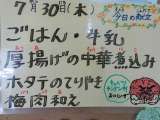 7月30日(木)
今日の献立
ごはん・牛乳
厚揚げの中華煮込み
ホタテのてりやき
梅肉和え